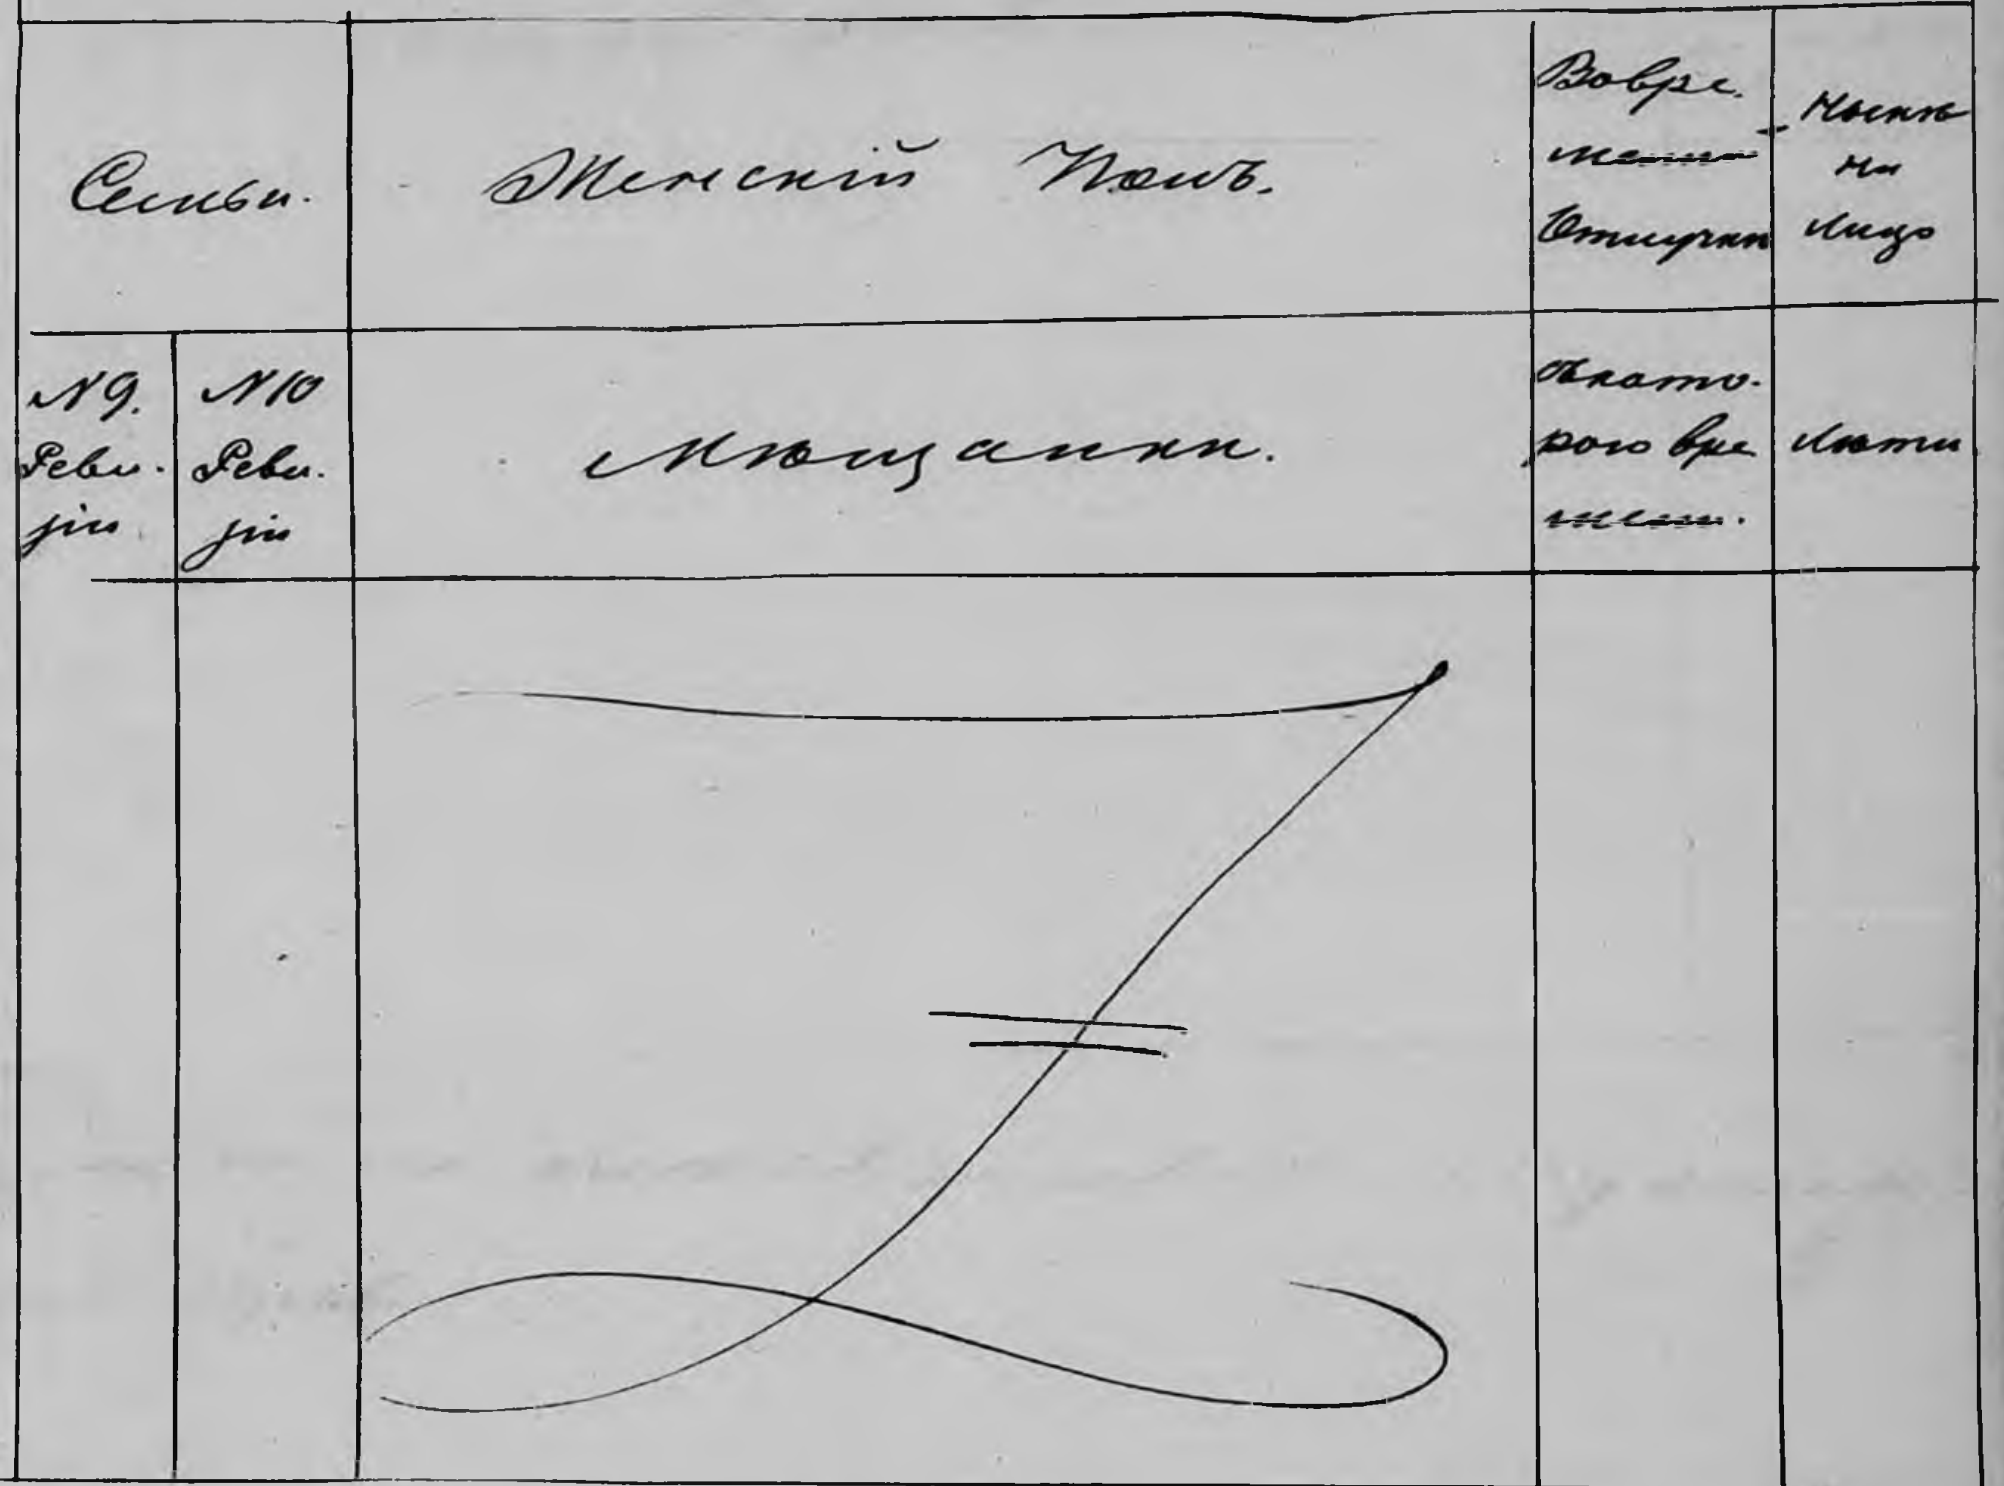 Семьи.
Женскій Полъ.
Вовре.
менно
Отлучки
Нынѣ
на
лицо
N 9.
Реви.
зіи
N 10
Реви.
зіи
Мѣщанки.
съ като.
рого вре
мени.
лѣти